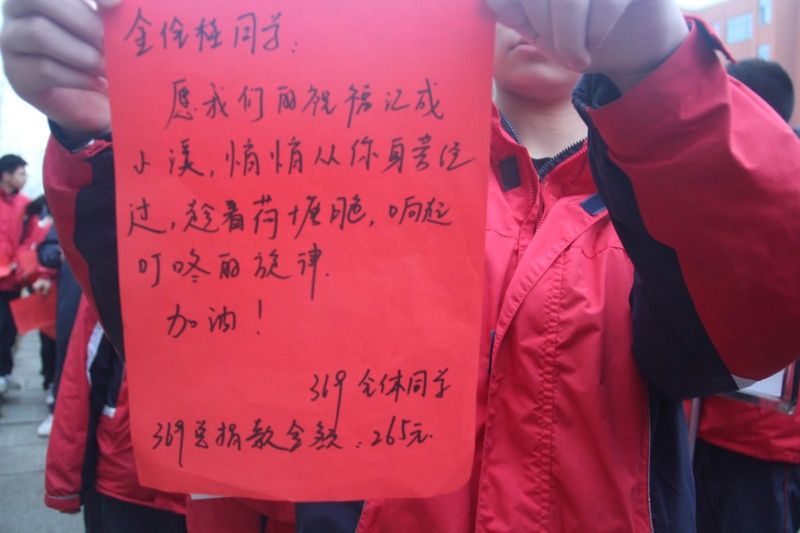 金佺桎同学:
愿我们的祝福汇成
小溪,悄悄从你身旁经
过,趁着荷塘月色,响起
叮咚的旋律.
加油!
369全体同学
369总捐款金额:265元.